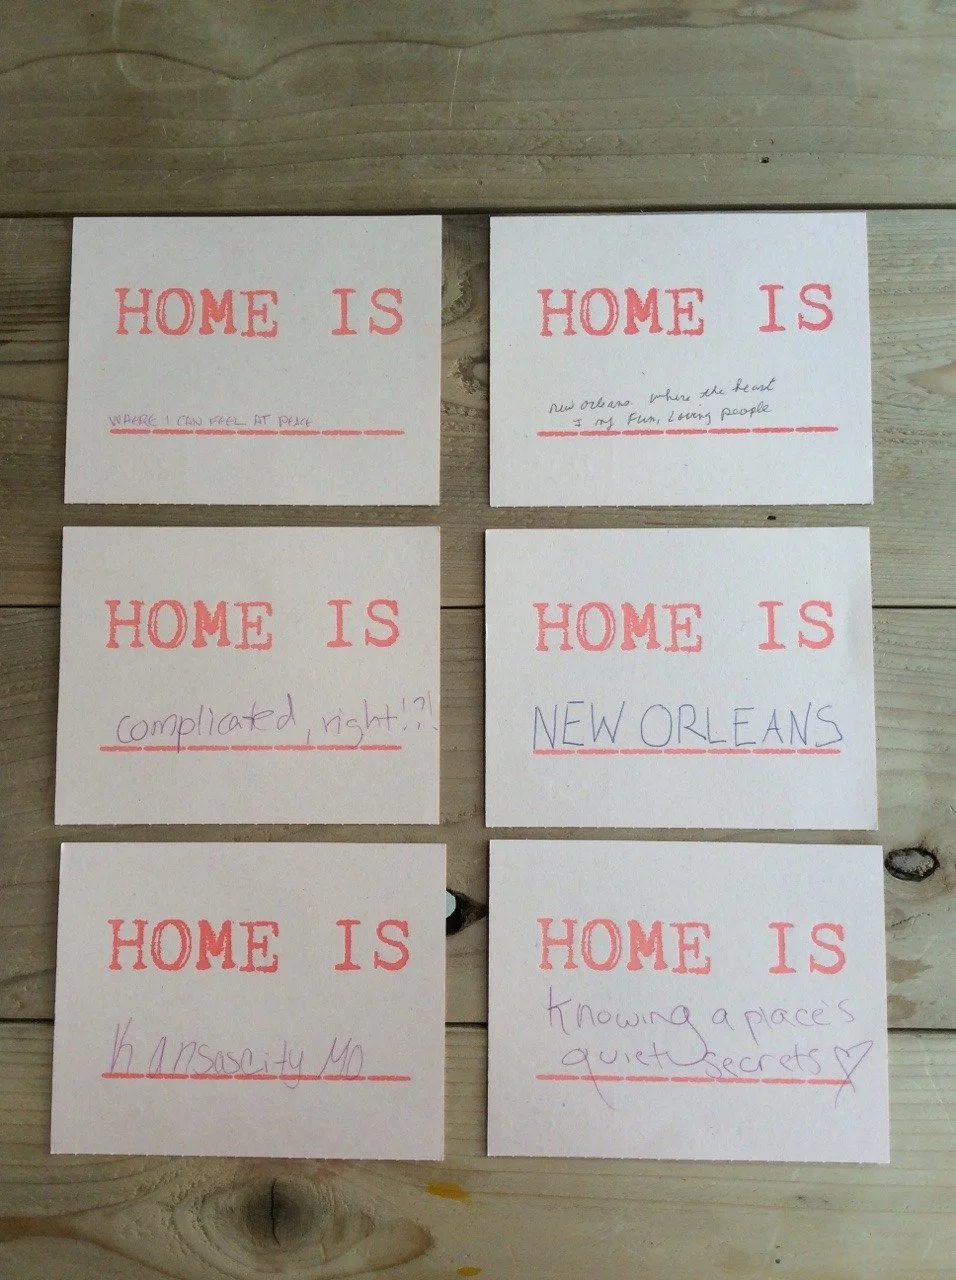 HOME IS
WHERE I CAN FEEL AT PEACE
HOME IS
new orleans where the heart
I my Fun, Loving people
HOME IS
complicated, right!?!
HOME IS
NEW ORLEANS
HOME IS
Kansascity Mo
HOME IS
Knowing a place's
quiet secrets ♡